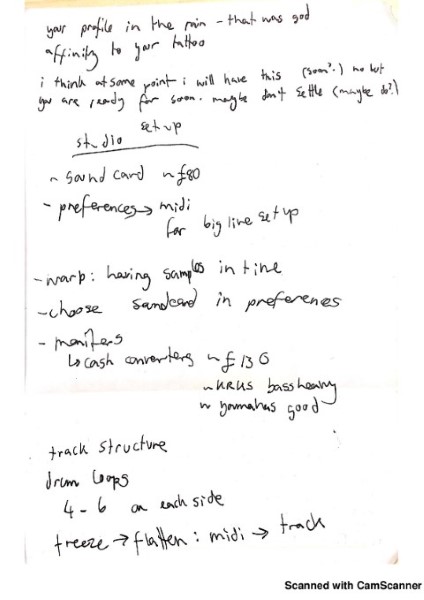 your profile in the rain - that was god
affinity to your tattoo
i think at some point i will have this (soon?.) no but
you are ready for soon. maybe don't settle (maybe do?)
studio set up
~ sound card ~£80
- preferences → midi
for big live set up
- warp: having samples in time
- choose soundcard in preferences
- moniters
↳ cash converters ~£130
~ KRKS bass heavy
~ yamahas good
track structure
drum loops
4 - 6 on each side
freeze → flatten : midi → track
Scanned with CamScanner